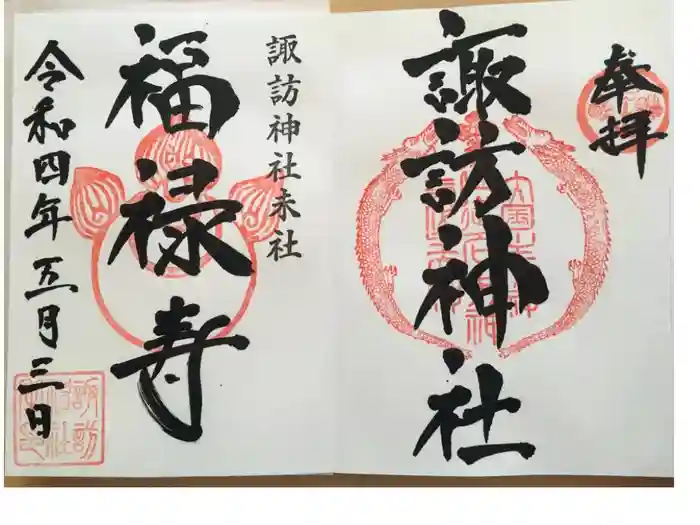 奉拝
諏訪神社
諏訪神社末社
福禄寿
令和四年五月三日
諏訪